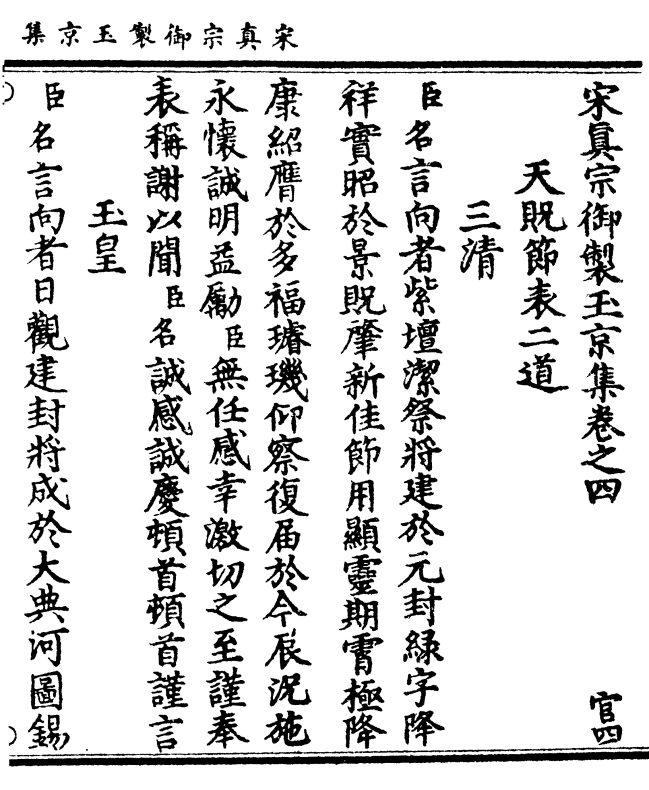 宋真宗御製玉京集
宋真宗御製玉京集卷之四 官四
天貺節表二道
三清
臣名言向者紫壇潔祭將建於元封綠字降
祥實昭於景貺肇新佳節用顯靈期霄極降
康紹膺於多福璿璣仰察復届於今辰況施
永懷誠明益勵臣無任感幸激切之至謹奉
表稱謝以聞臣名誠感誠慶頓首頓首謹言
玉皇
臣名言向者日觀建封將成於大典河圖錫